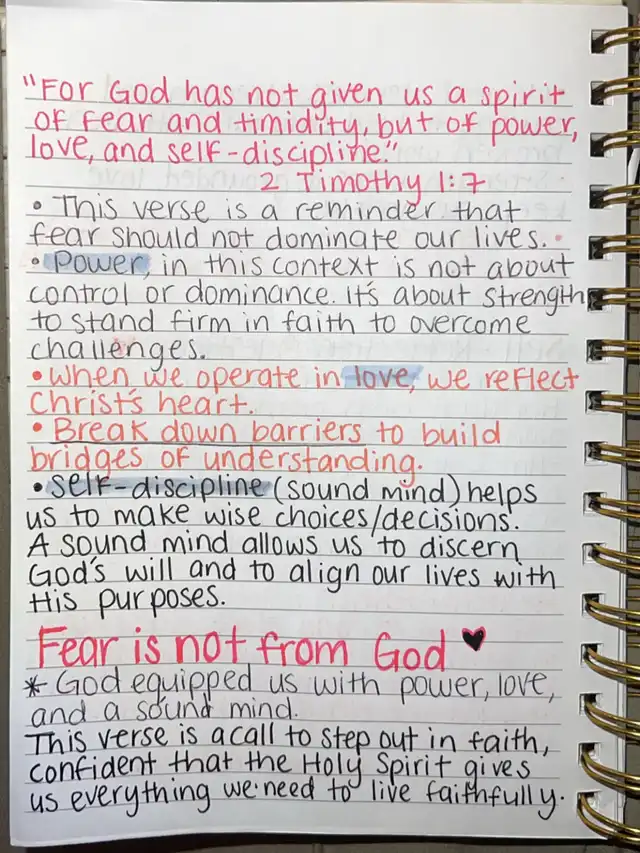 "For God has not given us a spirit
of fear and timidity, but of power,
love, and self-discipline."
2 Timothy 1:7
• This verse is a reminder that
fear should not dominate our lives.
• Power, in this context is not about
control or dominance. It's about strength
to stand firm in faith to overcome
challenges.
• When we operate in love, we reflect
Christ's heart.
• Break down barriers to build
bridges of understanding.
• Self-discipline (sound mind) helps
us to make wise choices/decisions.
A sound mind allows us to discern
God's will and to align our lives with
His purposes.
Fear is not from God ♥
* God equipped us with power, love,
and a sound mind.
This verse is a call to step out in faith,
confident that the Holy Spirit gives
us everything we need to live faithfully.